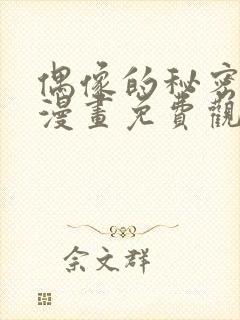 偶像的秘密
漫畫免費觀
佘文群